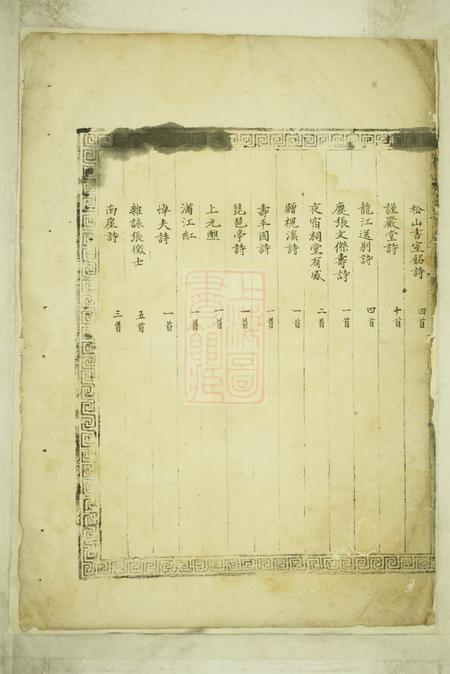 松山書室銘詩 四首
謹嚴堂詩 十首
龍江送別詩 四首
慶張文傑壽詩 一首
夜宿祠堂有感 二首
贈槐溪詩 一首
壽平園詩 一首
琵琶亭詩 一首
上元 一首
滿江紅 一首
悼夫詩 一首
雜詠張徵士 五首
南崖詩 三首
上海圖
書館藏